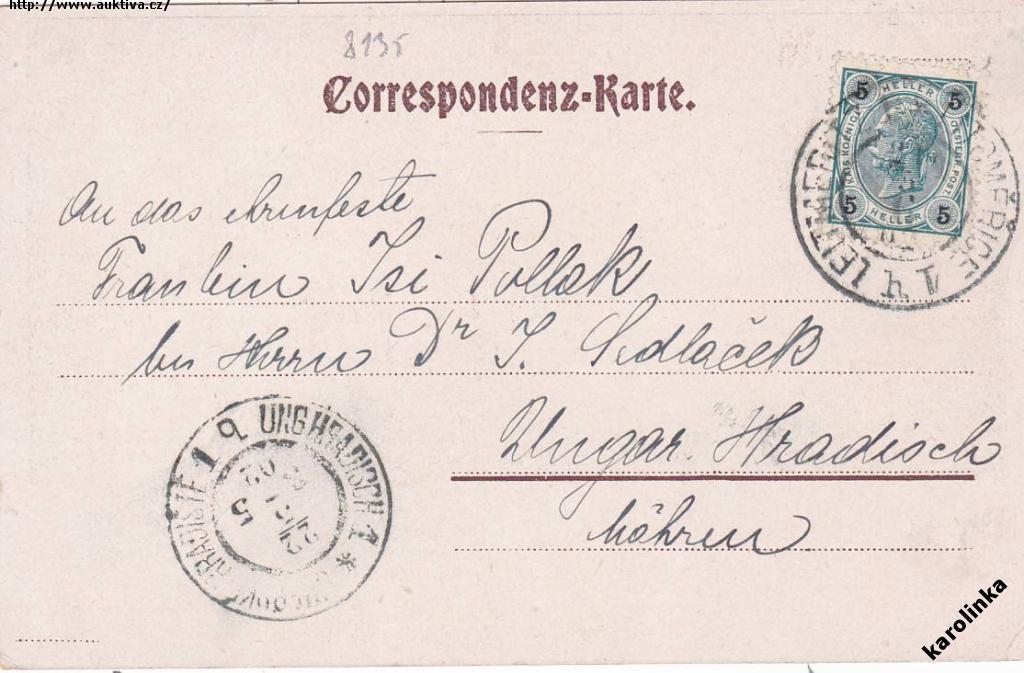 http://www.auktiva.cz/
8135
Correspondenz-Karte.
5 HELLER 5
KAIS KOENIGL OESTERR POST
5 HELLER 5
An das ehrenfeste
Fraulein Isi Pollak
bei Herrn Dr J. Sedlaček
Ungar. Hradisch
Mähren
UNG HRADISCH 1 *
HRADISTE 1
karolinka